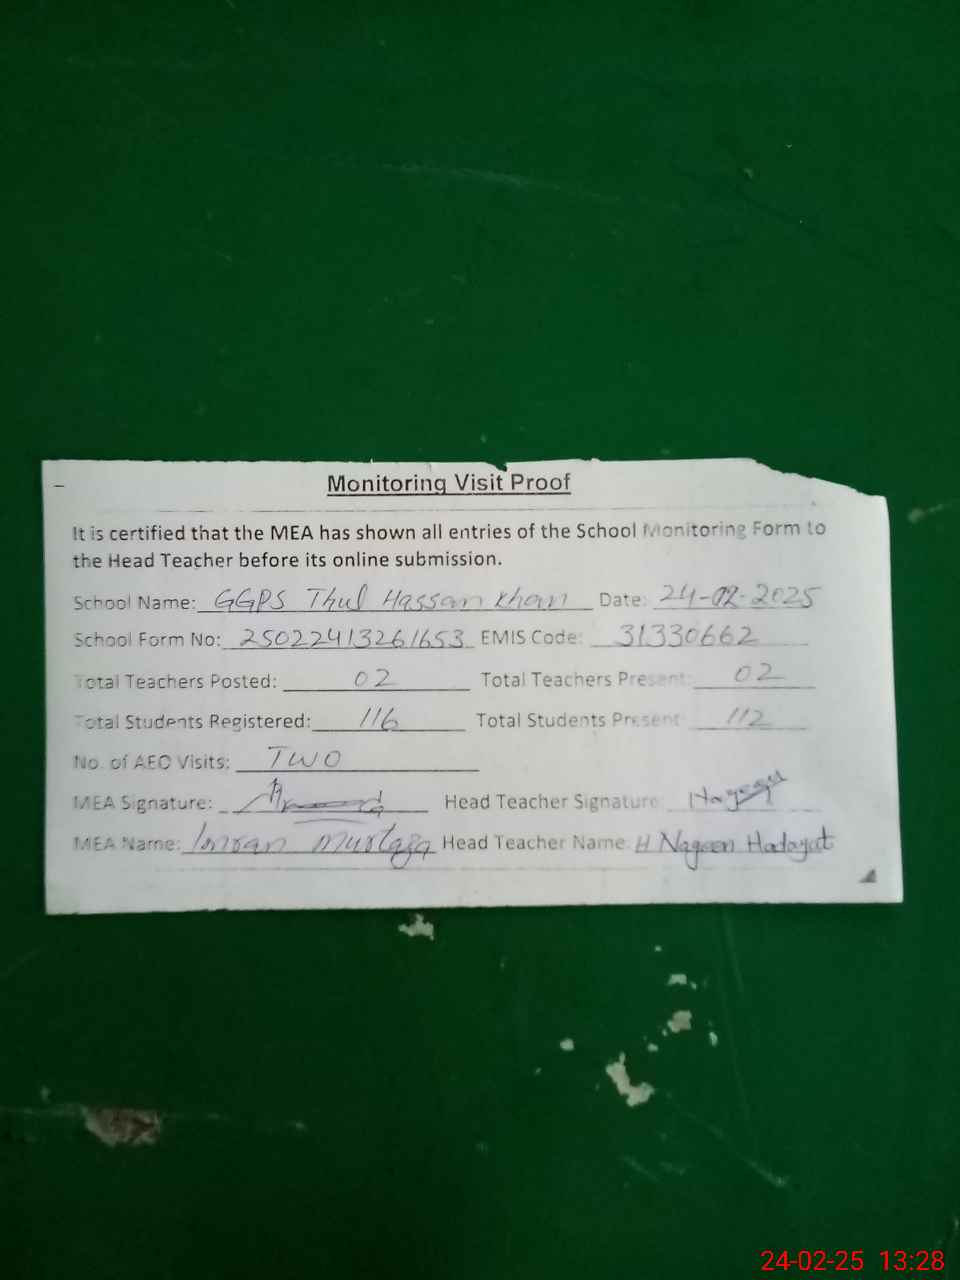 Monitoring Visit Proof
It is certified that the MEA has shown all entries of the School Monitoring Form to
the Head Teacher before its online submission.
School Name: GGPS Thul Hassan Khan Date: 24-02-2025
School Form No: 25022413261653 EMIS Code: 31330662
Total Teachers Posted: 02 Total Teachers Present: 02
Total Students Registered: 116 Total Students Present: 112
No. of AEO Visits: TWO
MEA Signature: Head Teacher Signature:
MEA Name: Imran Murtaza Head Teacher Name: H Nageen Hadayat
24-02-25 13:28